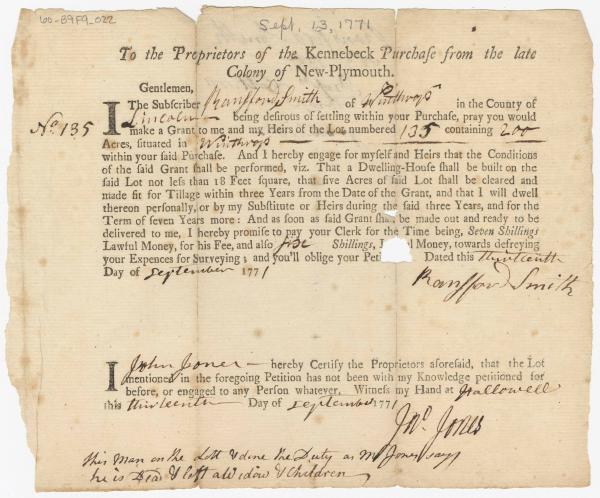 60-B9F9_022
Sept. 13, 1771
To the Proprietors of the Kennebeck Purchase from the late
Colony of New-Plymouth.
Gentlemen,
No. 135
I The Subscriber Ransford Smith of Winthrop in the County of
Lincoln being desirous of settling within your Purchase, pray you would
make a Grant to me and my Heirs of the Lot numbered 135 containing 200
Acres, situated in Winthrop
within your said Purchase. And I hereby engage for myself and Heirs that the Conditions
of the said Grant shall be performed, viz. That a Dwelling-House shall be built on the
said Lot not less than 18 Feet square, that five Acres of said Lot shall be cleared and
made fit for Tillage within three Years from the Date of the Grant, and that I will dwell
thereon personally, or by my Substitute or Heirs during the said three Years, and for the
Term of seven Years more: And as soon as said Grant shall be made out and ready to be
delivered to me, I hereby promise to pay your Clerk for the Time being, Seven Shillings
Lawful Money, for his Fee, and also Shillings, Money, towards defreying
your Expences for Surveying; and you'll oblige your Peti Dated this thirteenth
Day of September 1771
Ransford Smith
I John Jones hereby Certify the Proprietors aforesaid, that the Lot
mentioned in the foregoing Petition has not been with my Knowledge petitioned for
before, or engaged to any Person whatever. Witness my Hand at Hallowell
this thirteenth Day of September 1771
Jno. Jones
this Man on the Lott & done the Duty as Mr Jones says
he is Dead & left a Widow & Children